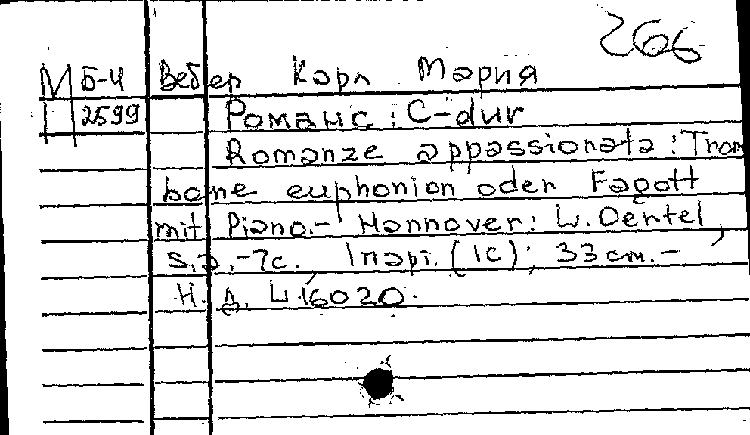 266
М Б-4 Вебер Карл Мария
2599 Романс: C-dur
Romanze appassionata: Trom
bone euphonion oder Fagott
mit Piano.- Hannover: L. Oertel,
s.a.-7с., 1парт. (1с); 33см.-
Н. Д. L.16020.